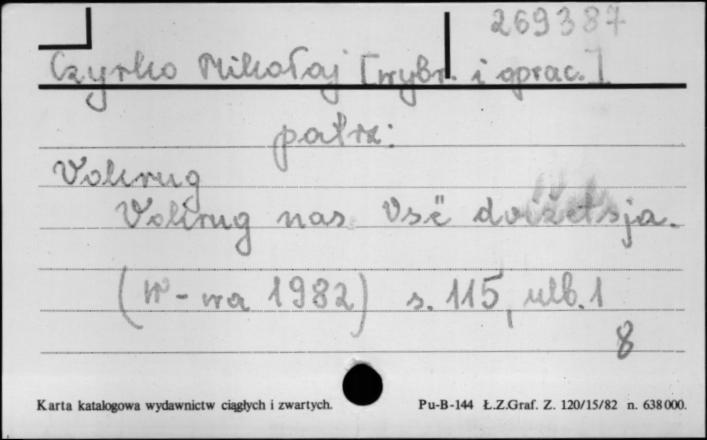 269387
Czyrko Mikołaj [wybr. i oprac.]
patrz:
Vokrug
Vokrug nas. Vsë dvižetsja.
(W-wa 1982) s. 115, nlb. 1
8
Karta katalogowa wydawnictw ciągłych i zwartych. Pu-B-144 Ł.Z.Graf. Z. 120/15/82 n. 638000.